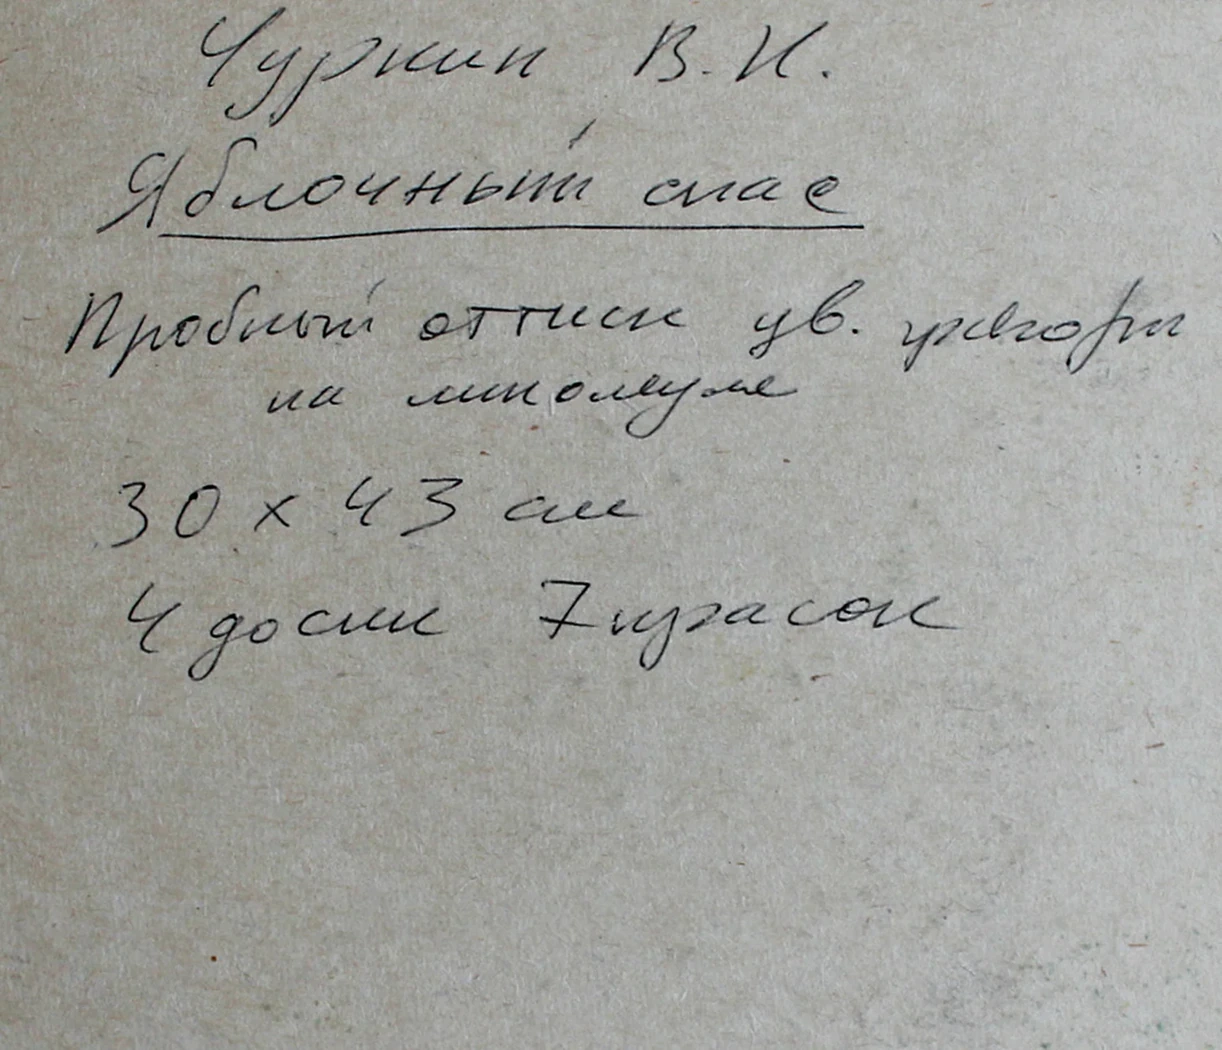 Чуркин В. И.
Яблочный спас
Пробный оттиск цв.
на линолеуме
30 х 43 см
4 доски 7 красок